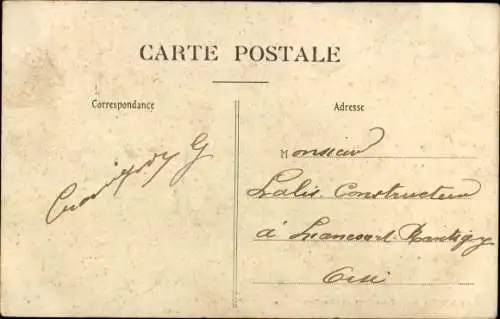 CARTE POSTALE
Correspondance
Adresse
Monsieur
Lalis Constructeur
à Liancourt-Rantigny
Oise